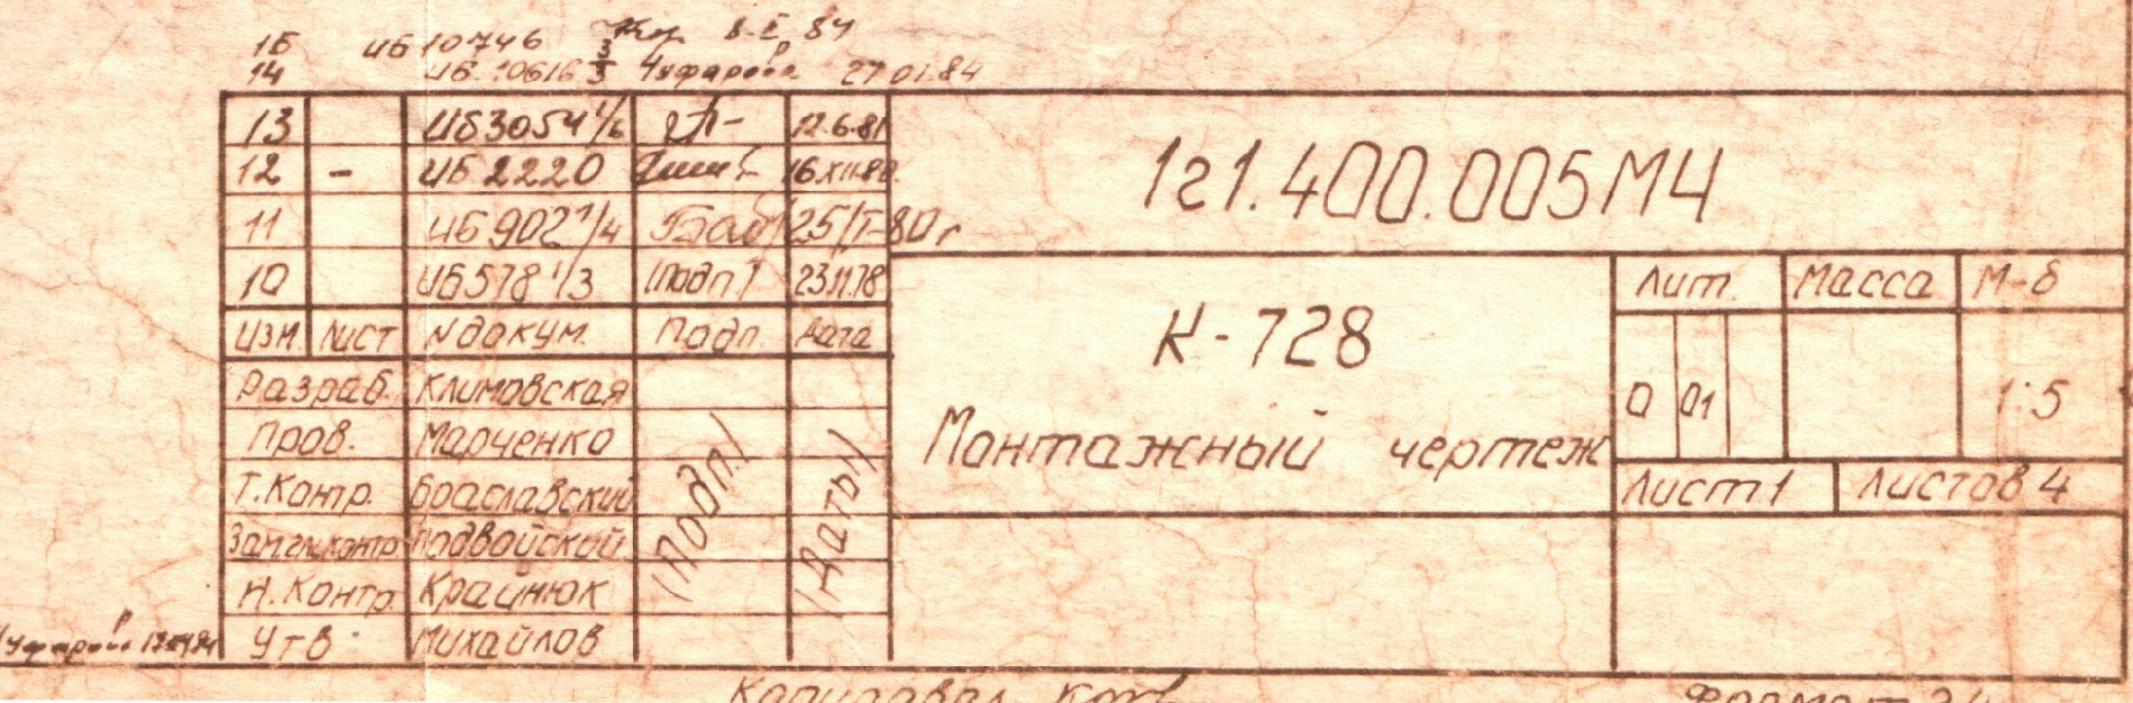 15 ИБ 10746 84
14 ИБ.10616 3/3 27 01.84
13 ИБ3054 1/6 12.6.81
12 - ИБ 2220 16.XII.80
11 ИБ 902 1/4 25/I-80 г
10 ИБ578 1/3 (подп) 23.11.78
Изм. Лист N докум. Подп. Дата
1г1.400.005МЧ
Разраб. Климовская
Пров. Марченко
Т.Контр. Браславский
Зам.гл.контр Подвойский
Н.Контр. Крайнюк
Утв. Михайлов
(Подп.)
(Даты)
К-728
Монтажный чертеж
Лит. Масса М-б
О 01 1:5
Лист 1 Листов 4
Копировал
Формат 24